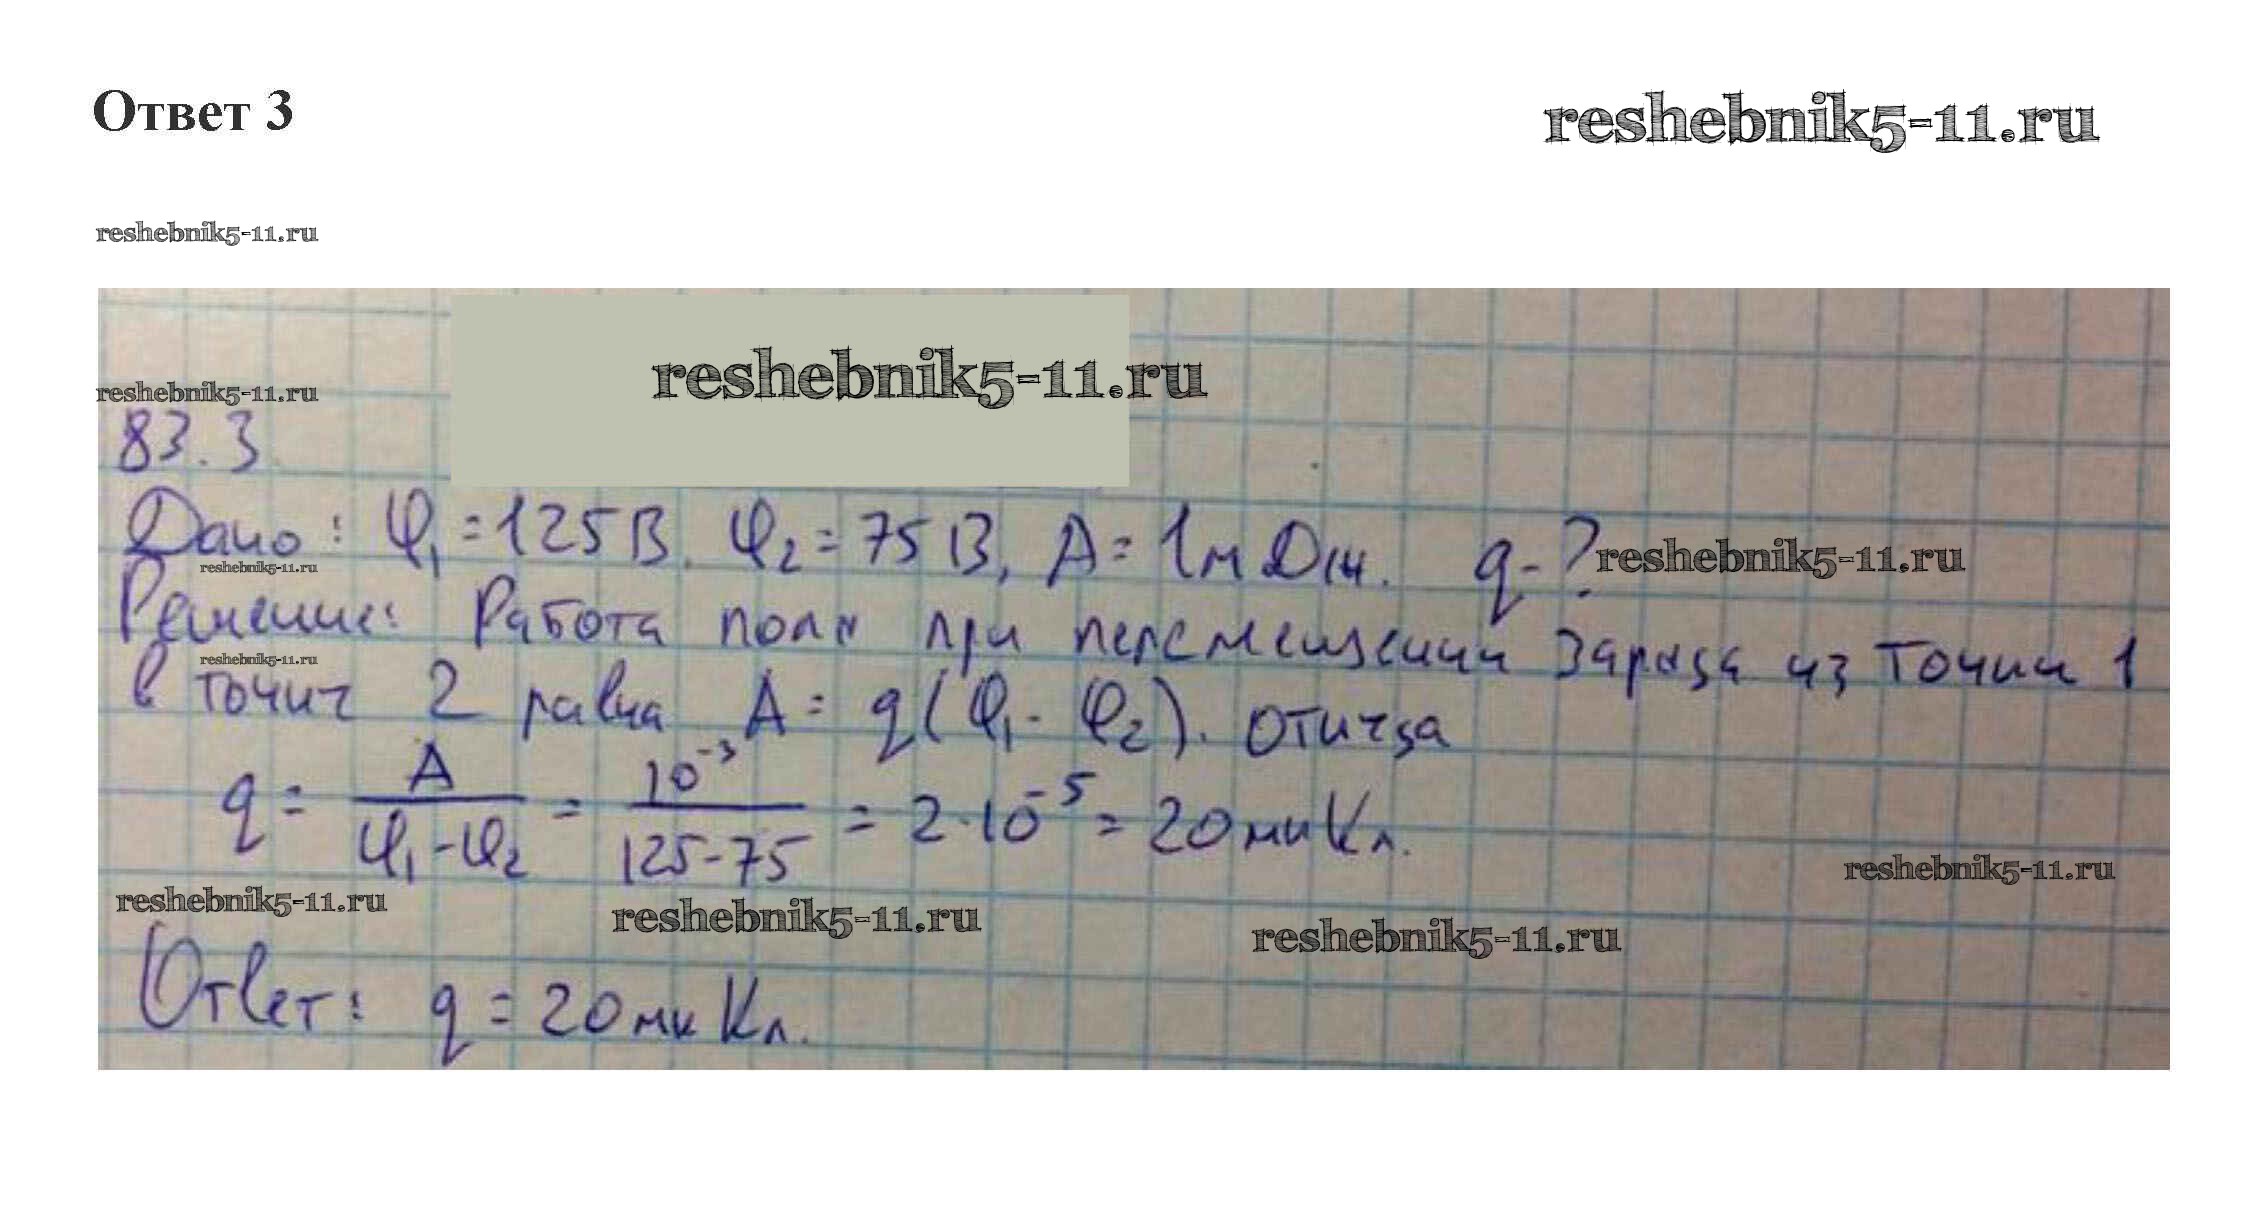 Ответ 3
reshebnik5-11.ru
reshebnik5-11.ru
reshebnik5-11.ru
reshebnik5-11.ru
83.3
Дано: φ₁ = 125 В. φ₂ = 75 В, A = 1 мДж. q - ?
reshebnik5-11.ru
reshebnik5-11.ru
Решение: Работа поля при перемещении заряда из точки 1
reshebnik5-11.ru
в точку 2 равна A = q(φ₁ - φ₂). отсюда
q = A / (φ₁ - φ₂) = 10⁻³ / (125 - 75) = 2·10⁻⁵ = 20 мкКл.
reshebnik5-11.ru
reshebnik5-11.ru
reshebnik5-11.ru
reshebnik5-11.ru
Ответ: q = 20 мкКл.